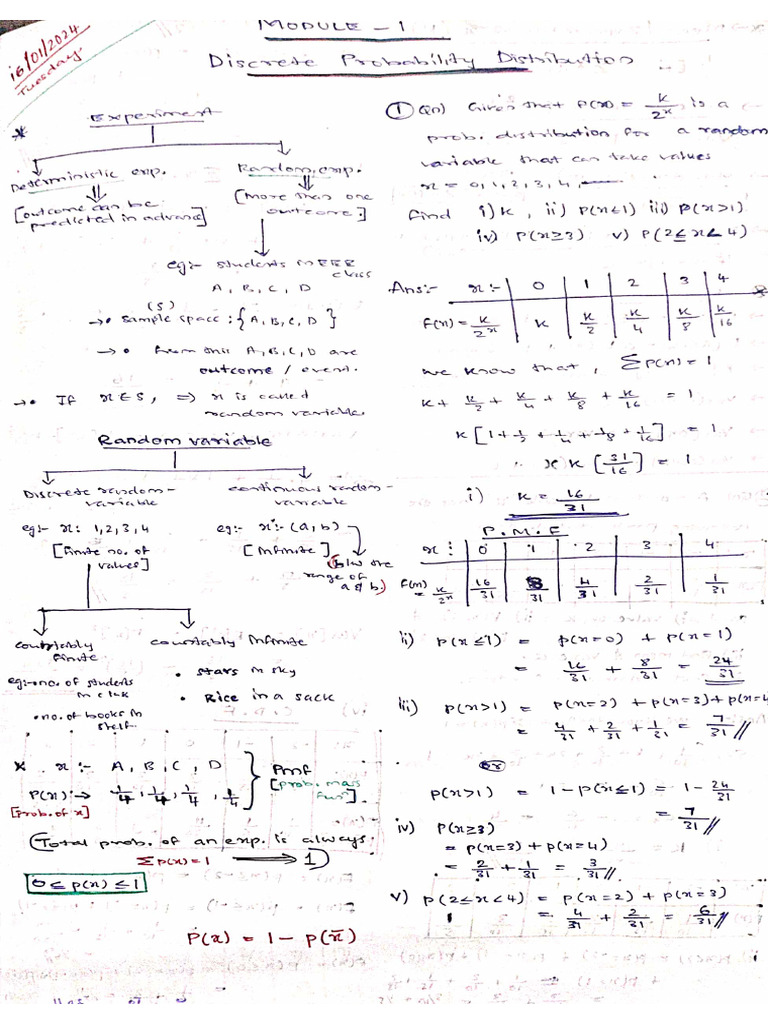 16/01/2024
Tuesday
MODULE - 1
Discrete Probability Distribution
* Experiment
Deterministic exp. Random exp.
[outcome can be predicted in advance]
[More than one outcome]
eg:- students in EEE class
A, B, C, D
(S)
→• sample space : {A, B, C, D}
→• from this A, B, C, D are
outcome / event.
→• If x ∈ S, ⇒ x is called
random variable.
Random variable
Discrete random-variable
continuous random-variable
eg:- x: 1, 2, 3, 4
eg:- x:- (a, b)
[finite no. of values]
[Infinite]
(b/w the range of a & b)
countably finite
countably infinite
eg:- no. of students in class
• no. of books in shelf
• stars in sky
• Rice in a sack
* x :- A, B, C, D
P(x) :→ 1/4, 1/4, 1/4, 1/4
[Prob. of x]
Pmf
[prob. mass fun]
(Total prob. of an exp. is always
ΣP(x) = 1 → 1)
0 ≤ p(x) ≤ 1
P(x) = 1 - P(x̄)
① Qn) Given that P(x) = k/2^x is a
prob. distribution for a random
variable that can take values
x = 0, 1, 2, 3, 4,
find i) k, ii) P(x≤1) iii) P(x>1)
iv) P(x≥3) v) P(2≤x<4)
Ans:- x :- | 0 | 1 | 2 | 3 | 4
F(x) = k/2^x | k | k/2 | k/4 | k/8 | k/16
we know that, ΣP(x) = 1
k + k/2 + k/4 + k/8 + k/16 = 1
k[1 + 1/2 + 1/4 + 1/8 + 1/16] = 1
k[31/16] = 1
i) k = 16/31
P.M.F
x : | 0 | 1 | 2 | 3 | 4
F(x) = k/2^x | 16/31 | 8/31 | 4/31 | 2/31 | 1/31
ii) P(x≤1) = P(x=0) + P(x=1)
= 16/31 + 8/31 = 24/31
iii) P(x>1) = P(x=2) + P(x=3) + P(x=4
= 4/31 + 2/31 + 1/31 = 7/31 //
or
P(x>1) = 1 - P(x≤1) = 1 - 24/31
= 7/31 //
iv) P(x≥3)
= P(x=3) + P(x=4)
= 2/31 + 1/31 = 3/31 //
v) P(2≤x<4) = P(x=2) + P(x=3)
= 4/31 + 2/31 = 6/31 //